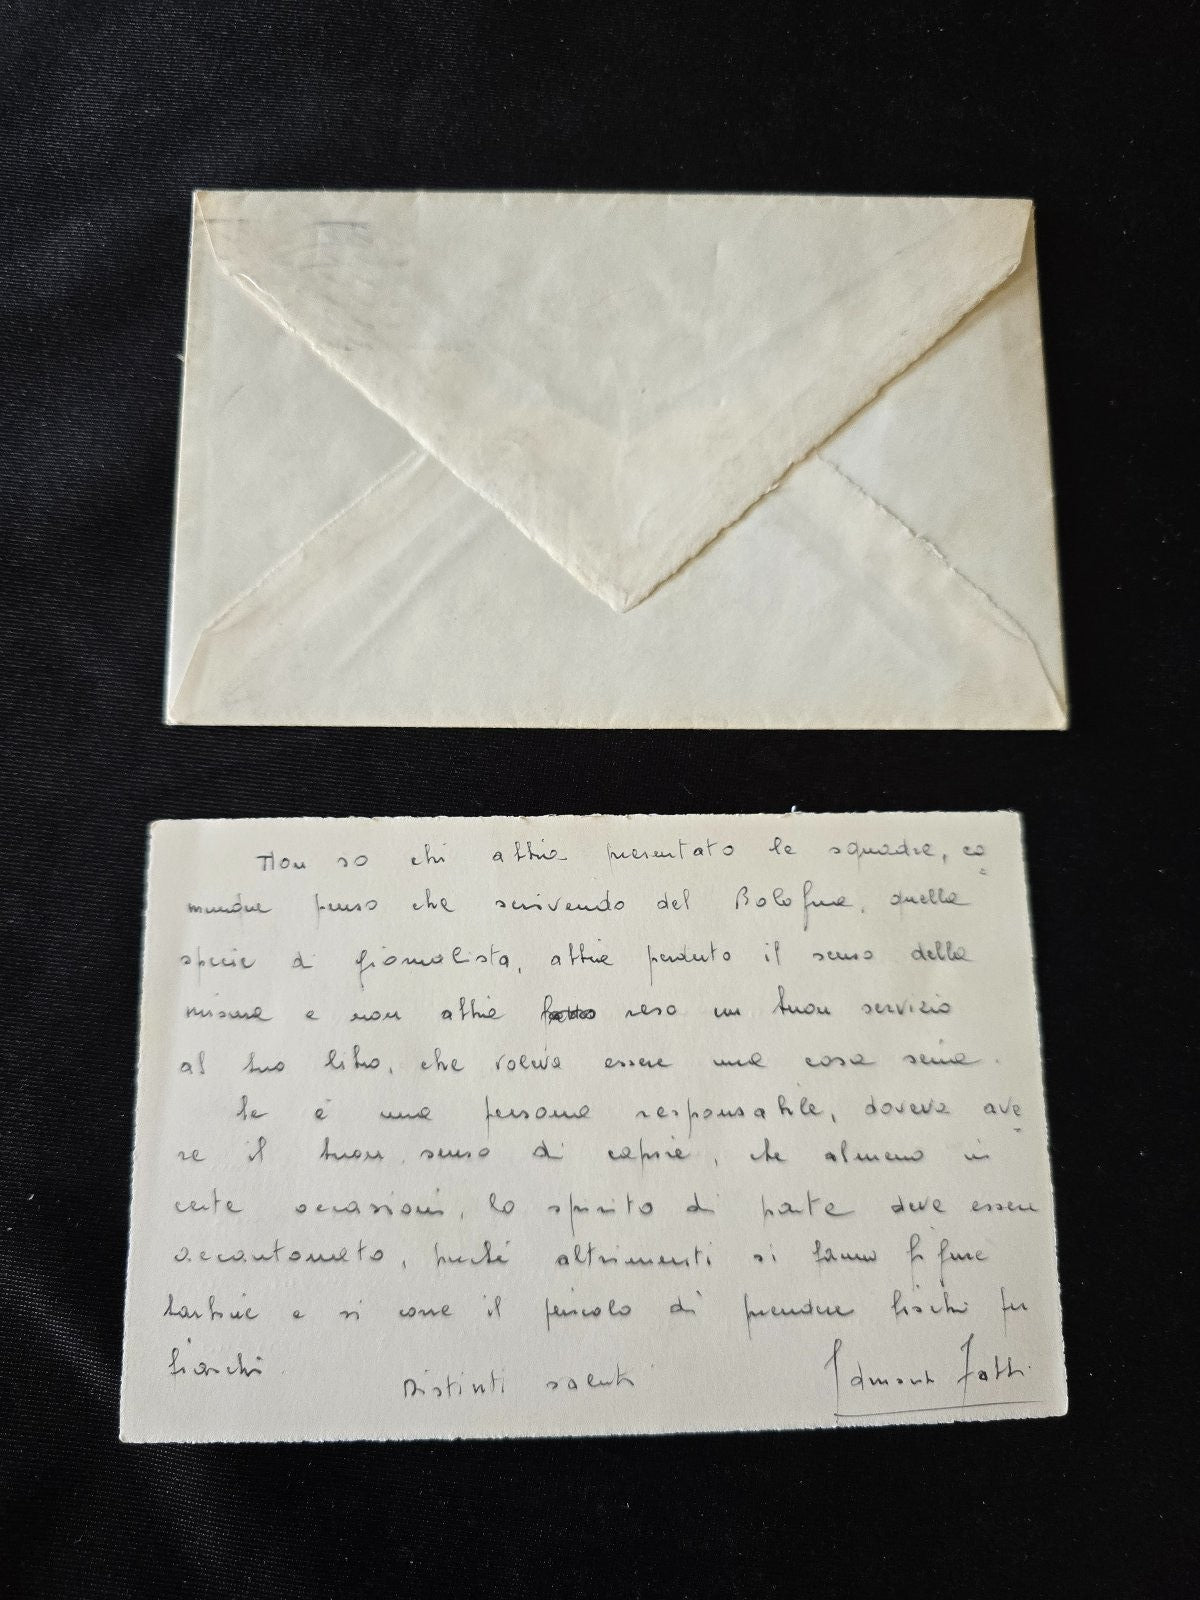 Non so chi abbia presentato le squadre, co
munque penso che scrivendo del Bologna, quella
specie di giornalista, abbia perduto il senso della
misura e non abbia fatto reso un buon servizio
al tuo libro, che voleva essere una cosa seria.
Se è una persona responsabile, doveva ave
re il buon senso di capire, che almeno in
certe occasioni, lo spirito di parte deve essere
accantonato, perché altrimenti si fanno figure
barbine e si corre il pericolo di prendere fischi per
fiaschi.
Distinti saluti
Edmondo Fabbri